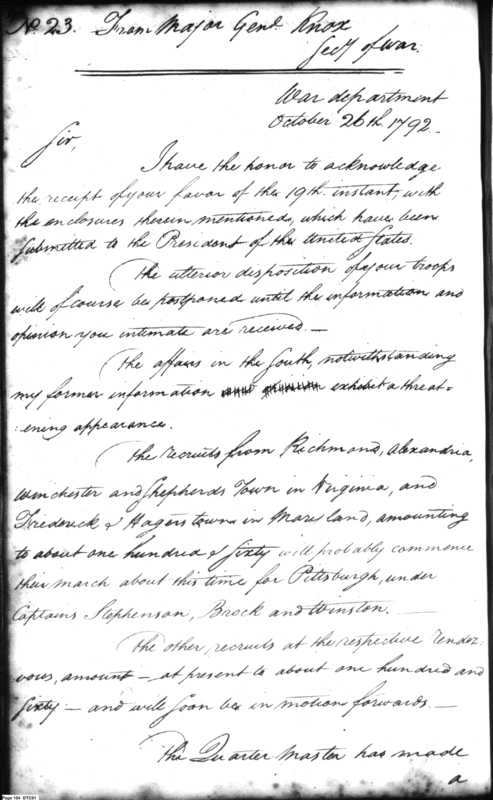 No. 23. From Major Genl. Knox
Secy of war.
War department
October 26th. 1792.
Sir,
I have the honor to acknowledge
the receipt of your favor of the 19th instant, with
the enclosures therein mentioned, which have been
submitted to the President of the United States.
The ulterior disposition of your troops
will of course be postponed until the information and
opinion you intimate are received. —
The affairs in the South, notwithstanding
my former information exhibit a threat=
:ening appearance.
The recruits from Richmond, Alexandria,
Winchester and Shepherds Town in Virginia, and
Frederick & Hagerstown in Maryland, amounting
to about one hundred & Sixty will probably commence
their march about this time for Pittsburgh, under
Captains Stephenson, Brock and Winston. —
The other, recruits at the respective rendez-
vous, amount — at present to about one hundred and
Sixty — and will soon be in motion forwards. —
The Quarter Master has made
a
Page 194 DTC01